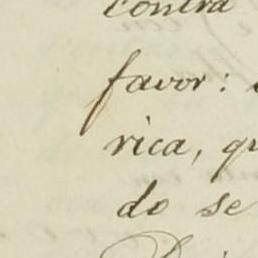 contra
favor:
rica, qu
do se